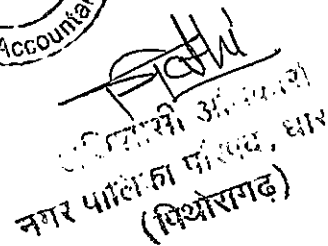 Accountant
अधिशासी अधिकारी
नगर पालिका परिषद, धार
(पिथौरागढ़)